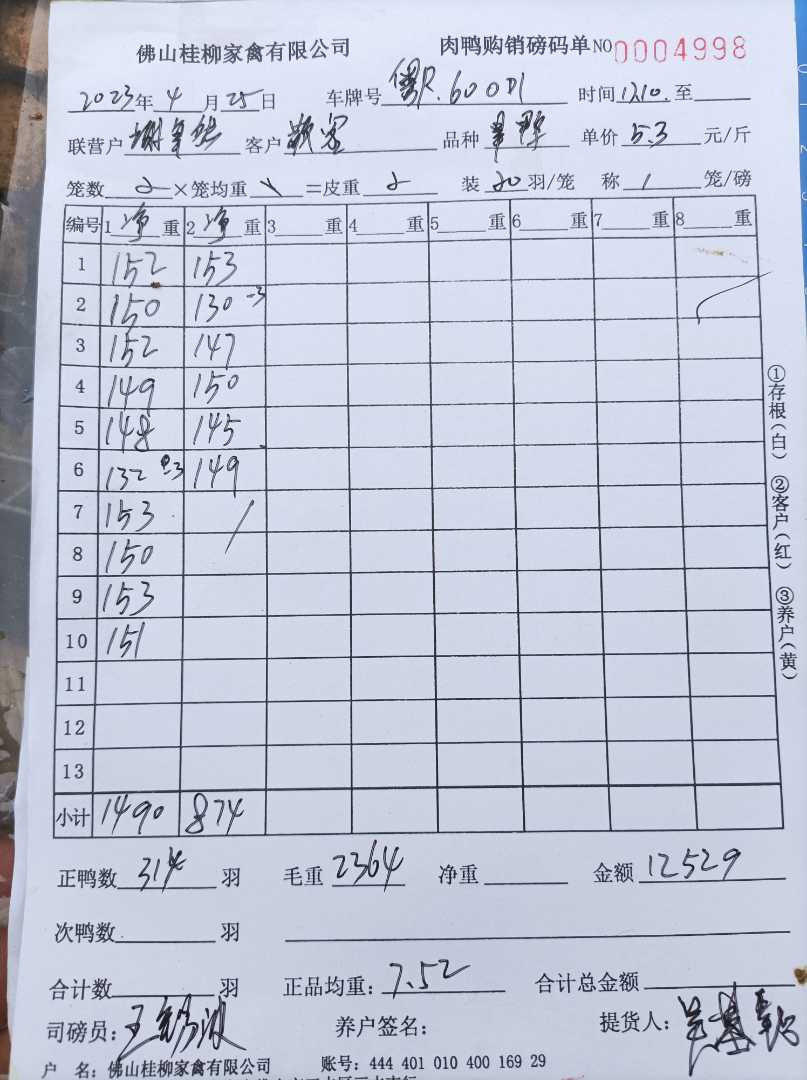 佛山桂柳家禽有限公司 肉鸭购销磅码单NO0004998
2023年4月25日 车牌号 R.600D1 时间1210.至
联营户 客户 品种 单价5.3元/斤
笼数2×笼均重1=皮重2 装20羽/笼 称1笼/磅
编号 1净重 2净重 3重 4重 5重 6重 7重 8重
1 152 153
2 150 130-3
3 152 147
4 149 150
5 148 145
6 132-3 149
7 153
8 150
9 153
10 151
11
12
13
小计 1490 874
①存根(白) ②客户(红) ③养户(黄)
正鸭数314羽 毛重2364 净重 金额12529
次鸭数 羽
合计数 羽 正品均重:7.52 合计总金额
司磅员: 养户签名: 提货人:
户 名:佛山桂柳家禽有限公司 账号:444 401 010 400 169 29